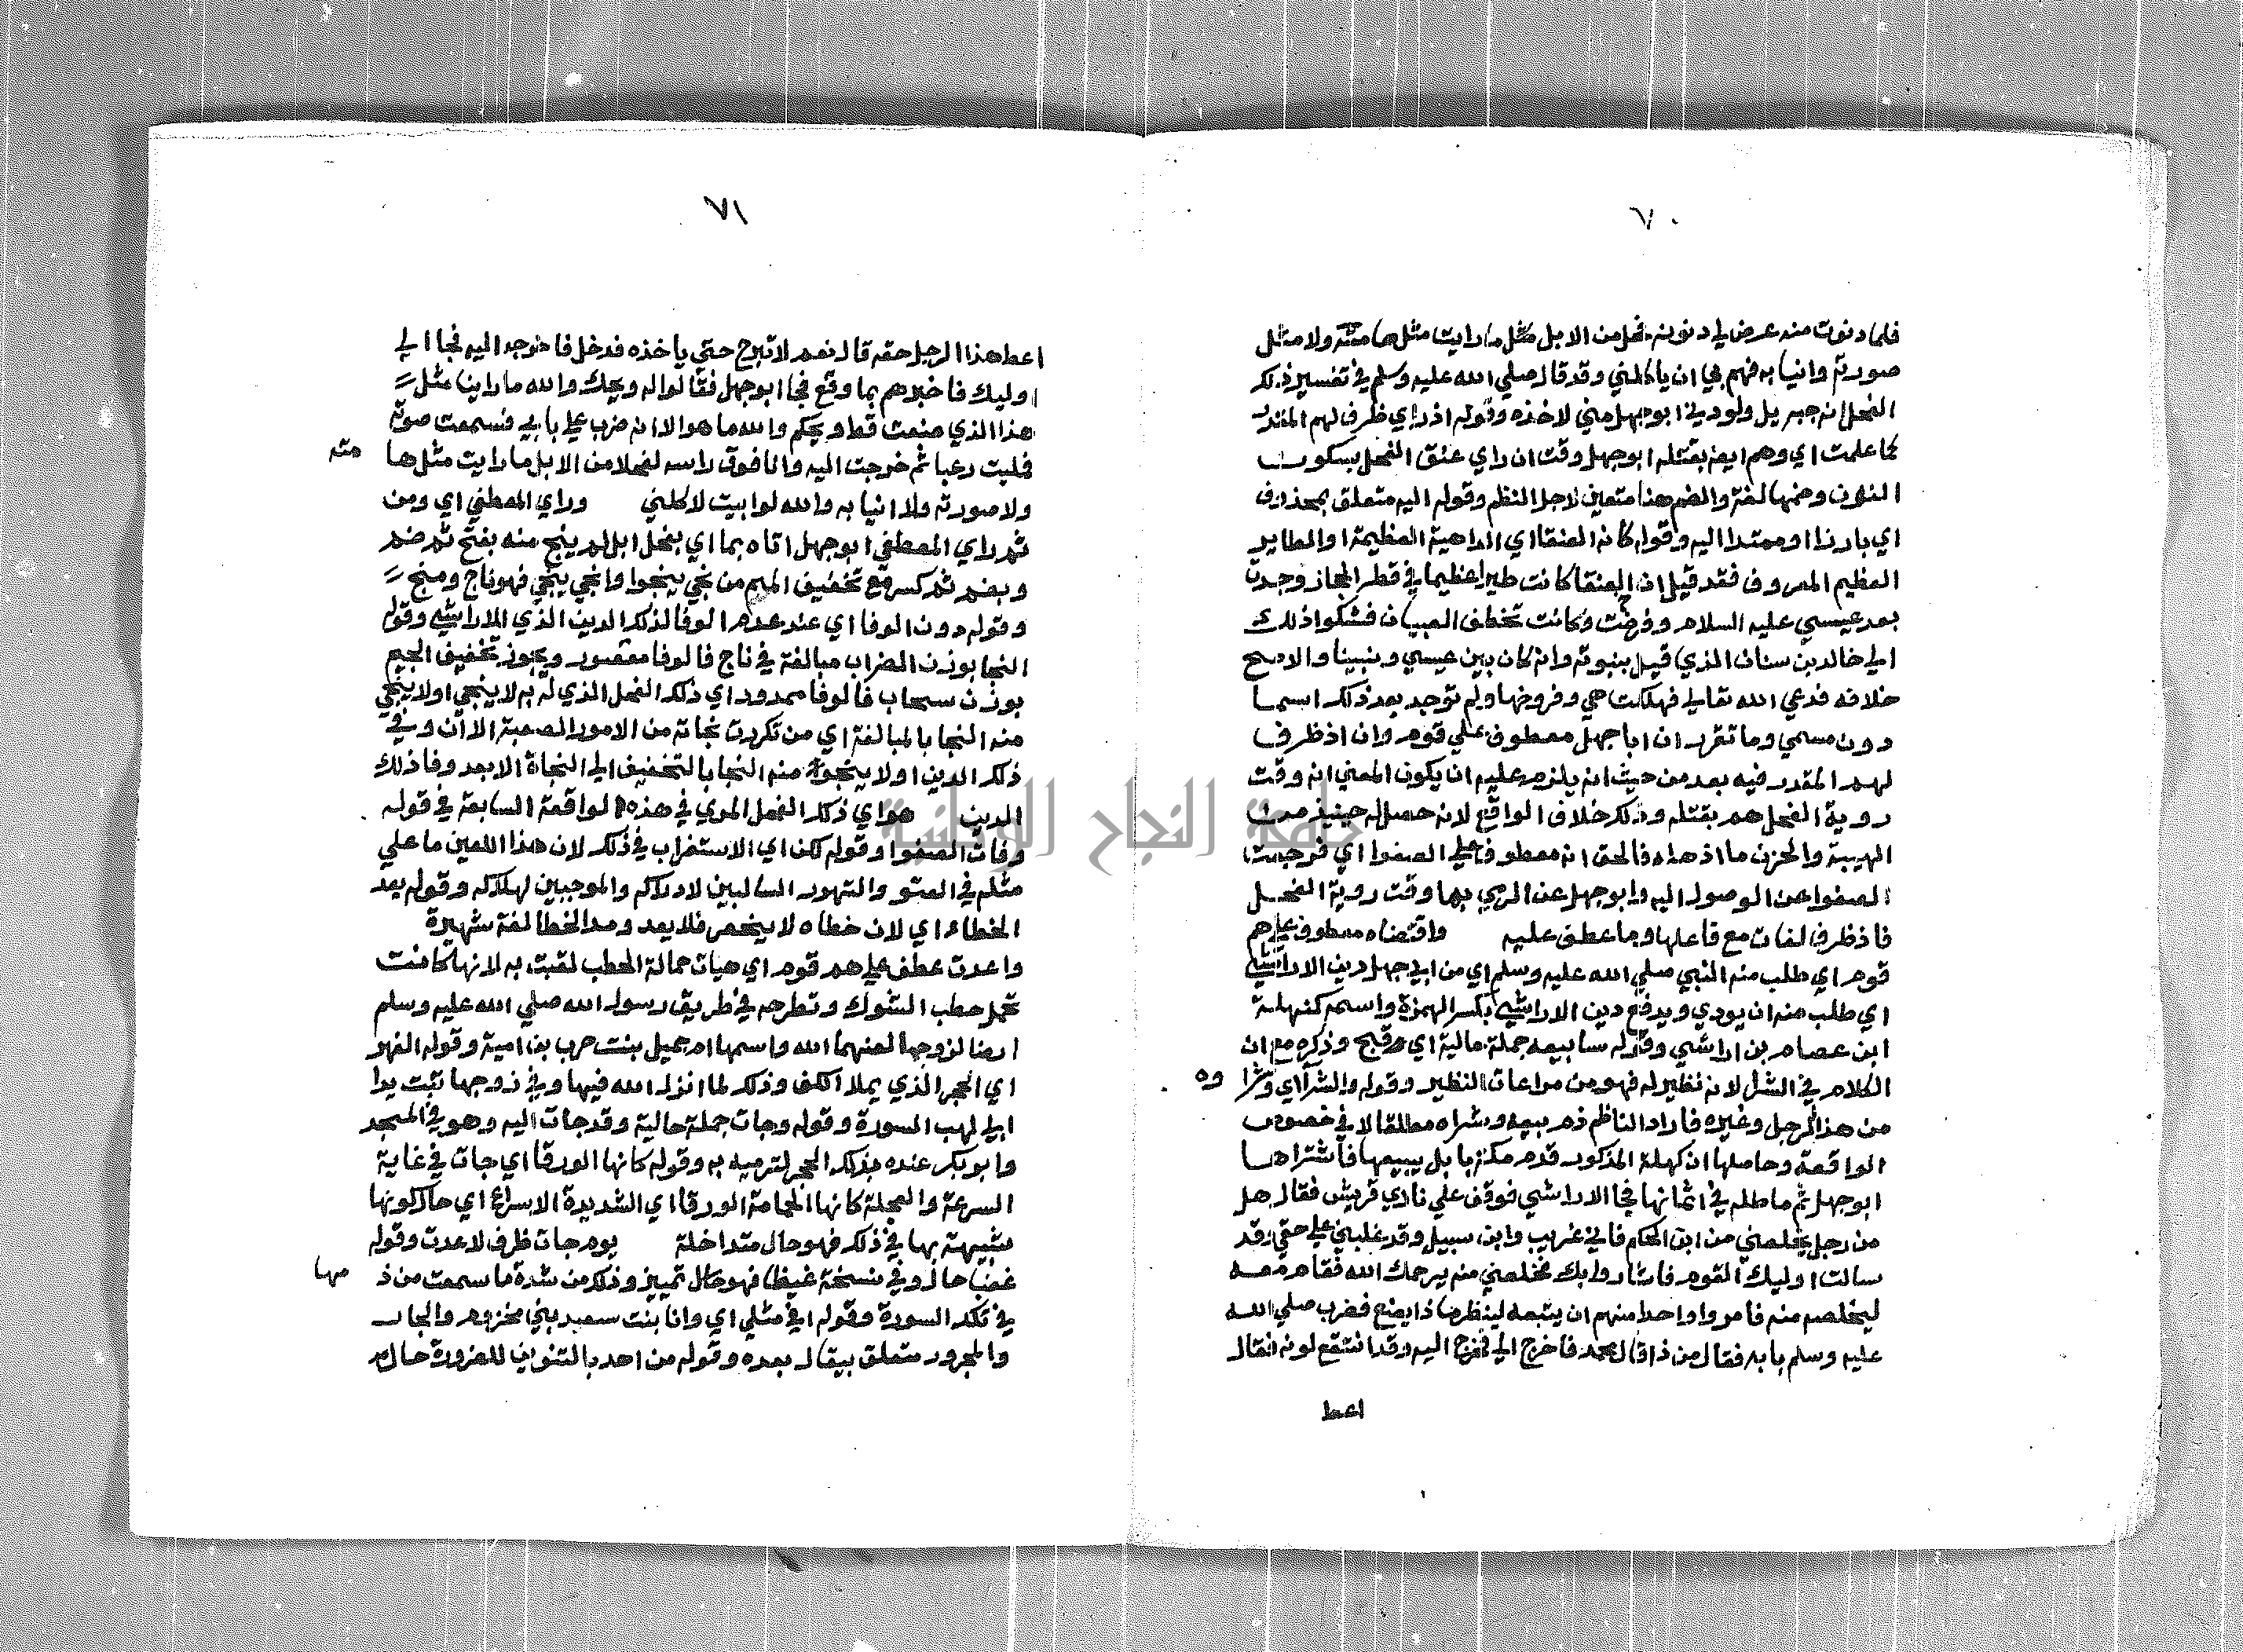 ٧٠
فلما دنوت منه عرض لي دونه فحل من الابل مثل ما رايت مثل هامته ولا مثل
صورته وانيابه فهم بي ان ياكلني وقد قال صلي الله عليه وسلم في تفسير ذلك
الفحل انه جبريل ولو دني ابو جهل مني لاخذه وقوله اذ راي ظرف لهم المقدر
كما علمت اي وهم ايضا بقتله ابو جهل وقت ان راي عنق الفحل بسكون
النون وضمها لغة والضم هنا متعين لاجل النظم وقوله اليه متعلق بمحذوف
اي بارزا او ممتدا اليه وقوله كانه العنقا اي الداهية العظيمة او الطاير
العظيم المعروف فقد قيل ان العنقا كانت طيرا عظيما في قطر الحجاز وجدت
بعد عيسي عليه السلام وفرخت وكانت تخطف الصبيان فشكوا ذلك
الي خالد بن سنان الذي قيل بنبوته وانه كان بين عيسي ونبينا والاصح
خلافه فدعي الله تعالي فهلكت هي وفروخها ولم توجد بعد ذلك اسما
دون مسمي وما تقرر ان ابا جهل معطوف علي قوم وان اذ ظرف
لهم المقدر فيه بعد من حيث انه يلزم عليه ان يكون المعني انه وقت
روية الفحل هم بقتله وذلك خلاف الواقع لانه حصل له حينيذ من
الهيبة والحزن ما اذهله فالحق انه معطوف علي الصفوا اي فوجهت
الصفوا عن الوصول اليه وابو جهل عن الرمي بها وقت روية الفحل
فاذ ظرف لفات مع فاعلها وما عطف عليه واقتضاه معطوف علي هم
قوم اي طلب منه النبي صلي الله عليه وسلم اي من ابي جهل دين الاراشي
اي طلب منه ان يودي ويدفع دين الاراشي بكسر الهمزة واسمه كنهلة
ابن عصام بن اراشي وقوله سا بيعه جملة حالية اي قبح وذكره مع ان
الكلام في الشرا لانه نظير له فهو من مراعات النظير وقوله والشرا اي وشرا وه
من هذا الرجل وغيره فاراد الناظم ذم بيعه وشراه مطلقا لا في خصوص
الواقعة وحاصلها ان كهلة المذكور قدم مكة بابل يبيعها فاشتراها
ابو جهل ثم ماطله في اثمانها فجا الاراشي فوقف علي نادي قريش فقال هل
من رجل يخلصني من ابن الحكم فاني غريب وابن سبيل وقد غلبني علي حقي وقد
سالت اوليك القوم فاشاروا بك تخلصني منه يرحمك الله فقام معه
ليخلصه منه فامروا واحدا منهم ان يتبعه لينظر ماذا يصنع فضرب صلي الله
عليه وسلم بابه فقال من ذا قال محمد فاخرج الي فخرج اليه وقد انتقع لونه فقال
اعط
٧١
اعط هذا الرجل حقه قال نعم لا تبرح حتي ياخذه فدخل فاخرجه اليه فجا الي
اوليك فاخبرهم بما وقع فجا ابو جهل فقالوا له ويحك والله ما راينا مثل
هذا الذي صنعت قط ويحكم والله ما هو الا ان ضرب علي بابي فسمعت صوته
فمليت رعبا ثم خرجت اليه وانا فوق راسه لفحلا من الابل ما رايت مثل ها مته
ولا صورته ولا انيابه والله لو ابيت لاكلني وراي المصطفي اي ومن
ثم راي المصطفي ابو جهل اتاه بما اي بفحل ابل لم ينج منه بفتح ثم ضم
وبضم ثم كسر مع تخفيف الجيم من نجي ينجوا وانجي ينجي فهو ناج ومنج
وقوله دون الوفا اي عند عدم الوفا لذلك الدين الذي للاراشي وقوله
النجا بوزن الضراب مبالغة في ناج فالوفا مقصور ويجوز تخفيف الجيم
بوزن سحاب فالوفا ممدود اي ذلك الفحل الذي له به لا ينجي او لا ينجي
منه النجا بالمبالغة اي من تكررت نجاته من الامور الصعبة الا ان وفي
ذلك الدين او لا ينجوا منه النجا بالتخفيف الي النجاة الا بعد وفا ذلك
الدين هو اي ذلك الفحل المري في هذه الواقعة السابقة في قوله
وفات الصفوا وقوله لكن اي الاستغراب في ذلك لان هذا اللعين ما علي
مثله في العتو والتهور السالبين لادراكه والموجبين لهلاكه وقوله يعد
الخطاء اي لان خطاه لا ينحصر فلا يعد ومد الخطا لغة شهيرة
واعدت عطف علي هم قوم اي هيات حمالة الحطب لقبت به لانها كانت
تحمل حطب الشوك وتطرحه في طريق رسول الله صلي الله عليه وسلم
ارضا لزوجها لعنهما الله واسمها ام جميل بنت حرب بن امية وقوله الفهر
اي الحجر الذي يملا الكف وذلك لما انزل الله فيها وفي زوجها تبت يدا
ابي لهب السورة وقوله وجات جملة حالية وقد جات اليه وهو في المسجد
وابو بكر عنده بذلك الحجر لترميه به وقوله كانها الورقا اي جات في غاية
السرعة والعجلة كانها الحمامة الورقا اي الشديدة الاسراع اي حال كونها
شبيهة بها في ذلك فهو حال متداخلة يوم جات ظرف لاعدت وقوله
غضبا حال وفي نسخة غيظا فهو حال تمييز وذلك من شدة ما سمعت من ذ مها
في تلك السورة وقوله افي مثلي اي وانا بنت سعيد بني مخزوم والجار
والمجرور متعلق بيقال بعده وقوله من احد بالتنوين للضرورة حال
جامعة النجاح الوطنية